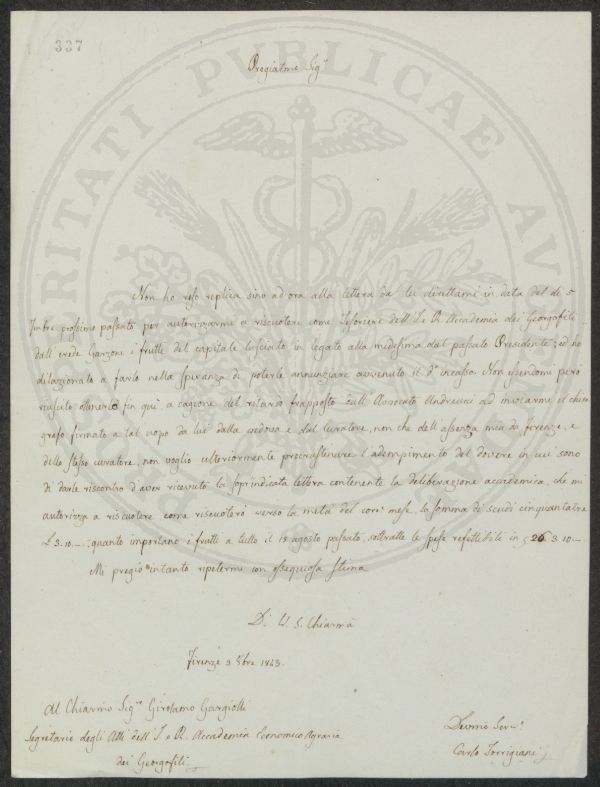 337
PROSPERITATI PVBLICAE AVGENDAE
Pregiatmo Sigr
Non ho reso replica sino ad ora alla lettera da lei direttami in data del dì 5
7mbre prossimo passato per autorizzarmi a riscuotere come Tesoriere dell'I. R. Accademia dei Georgofili
dall'erede Garzoni i frutti del capitale lasciato in legato alla medesima dal passato Presidente; ed ho
dilazionato a farlo nella speranza di poterle annunziare avvenuto il do incasso. Non essendomi però
riuscito ottenerlo fin quì a cagione del ritardo frapposto dall'Avvocato Andreucci ad inviarme il chiro
grafo firmato a tal uopo da lui dalla vedova e dal curatore, non che dell'assenza mia da Firenze, e
dello stesso curatore, non voglio ulteriormente procrastinare l'adempimento del dovere in cui sono
di darle riscontro d'aver ricevuto la soprindicata lettera contenente la deliberazione accademica, che mi
autorizza a riscuotere come riscuoterò verso la metà del core mese, la somma di scudi cinquantatre
£ 3.10.—. quanto importano i frutti a tutto il 18 agosto passato, sottratte le spese in 26 3 10.—
Mi pregio intanto ripetermi con ossequiosa stima
Di V. S. Chiarma
Firenze 3 1843.
Al Chiarmo Sigre Girolamo Gargiolli
Segretario degli Atti dell'I. e R. Accademia Economico Agraria
dei Georgofili
Devmo Servr
Carlo Torrigiani